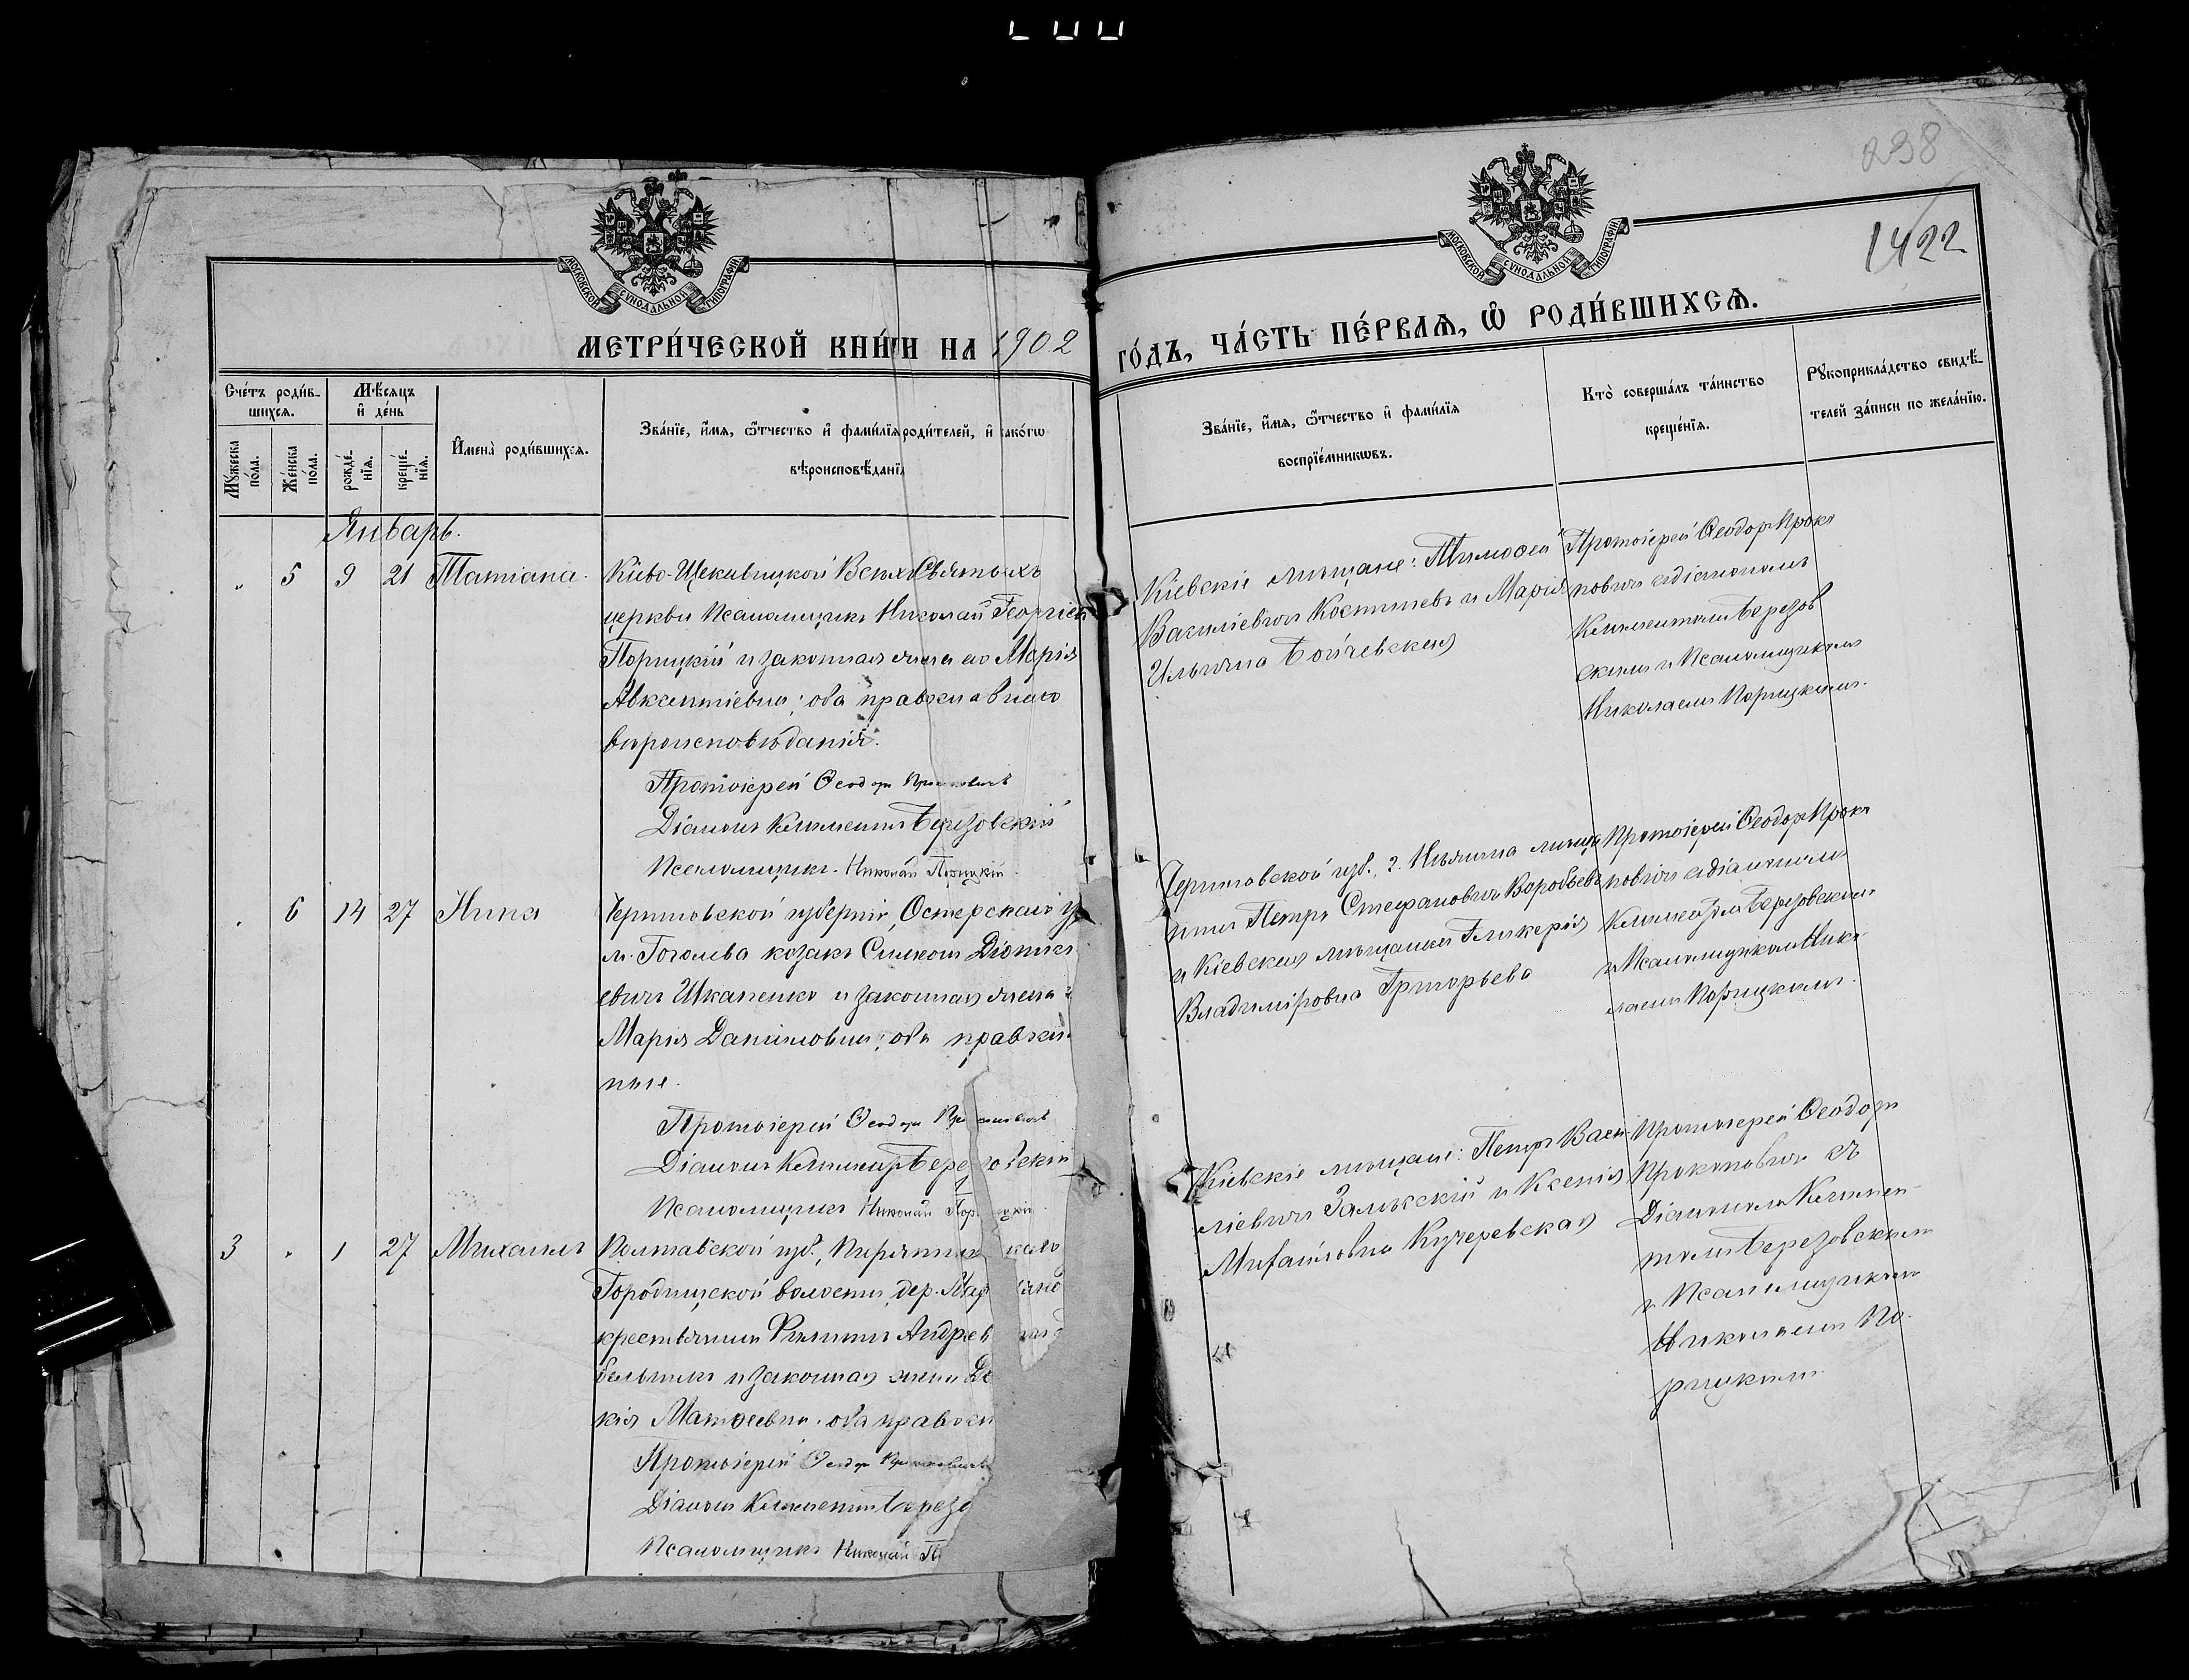 238
1422
МОСКОВСКОЙ СУНОДАЛЬНОЙ ТИПОГРАФІИ
МОСКОВСКОЙ СУНОДАЛЬНОЙ ТИПОГРАФІИ
МЕТРИ́ЧЕСКОЙ КНИ́ГИ НА 1902
ГО́ДЪ, ЧА́СТЬ ПЕ́РВАѦ, Ѡ РОДИ́ВШИХСѦ.
Сче́тъ роди́в-
шихсѧ.
Мѣ́сяцъ
и҆ де́нь
Мꙋ́жеска
по́ла.
Же́нска
по́ла.
рожде́-
нїѧ.
креще́-
нїѧ.
И҆мена̀ роди́вшихсѧ.
Зва́нїе, и҆́мѧ, ѻ҆́тчество и҆ фами́лїѧ роди́телей, и҆ какѡ́гѡ
вѣроисповѣ́данїѧ
Зва́нїе, и҆́мѧ, ѻ҆́тчество и҆ фами́лїѧ
воспрїе́мникѡвъ.
Кто̀ соверша́лъ та́инство
креще́нїѧ.
Рꙋкоприкла́дство свидѣ́-
телей за́писи по жела́нїю.
Январь.
" 5 9 21 Татіана.
Кіево-Щекавицкой Всѣхъ Святыхъ
церкви псаломщикъ Николай Георгіев
Порицкій и законная жена его Марія
Авксентіевна; оба православнаго
вѣроисповѣданія.
Протоіерей Ѳеодоръ Прокоповичъ
Діаконъ Климентъ Березовскій
Псаломщикъ Николай Порицкій
Кіевскіе мѣщане: Тимоѳей
Василіевичъ Костышевъ и Марія
Ильина Бойчевская
Протоіерей Ѳеодоръ Проко
повичъ съ діакономъ
Климентомъ Березов
скимъ и псаломщикомъ
Николаемъ Порицкимъ.
" 6 14 27 Нина
Черниговской губерніи, Остерскаго у
м. Гоголева козакъ Симеонъ Діонисі
евичъ Шкапенко и законная жена е
Марія Даниловна; оба православ
ные.
Протоіерей Ѳеодоръ Прокоповичъ
Діаконъ Климентъ Березовскій
Псаломщикъ Николай Порицкій
Черниговской губ., г. Нѣжина мѣща
нинъ Петръ Стефановичъ Воробьевъ
и Кіевская мѣщанка Гликерія
Владиміровна Григорьева
Протоіерей Ѳеодоръ Проко
повичъ съ діакономъ
Климентомъ Березовскимъ
и псаломщикомъ Нико
лаемъ Порицкимъ.
3 " 1 27 Михаилъ
Полтавской губ., Пирятин каго
Городищской волости, дер. Мар
крестьянинъ Филиппъ Андреев
бельникъ и законная жена
кія Матѳеевна. оба правосл
Протоіерей Ѳеодоръ Прокоповичъ
Діаконъ Климентъ Березо
Псаломщикъ Николай П
Кіевскіе мѣщане: Петръ Васи
ліевичъ Залѣжскій и Ксенія
Михайловна Кучеревская
Протоіерей Ѳеодоръ
Прокоповичъ съ
Діакономъ Климен
томъ Березовскимъ
и Псаломщикомъ
Николаемъ По-
рицкимъ.